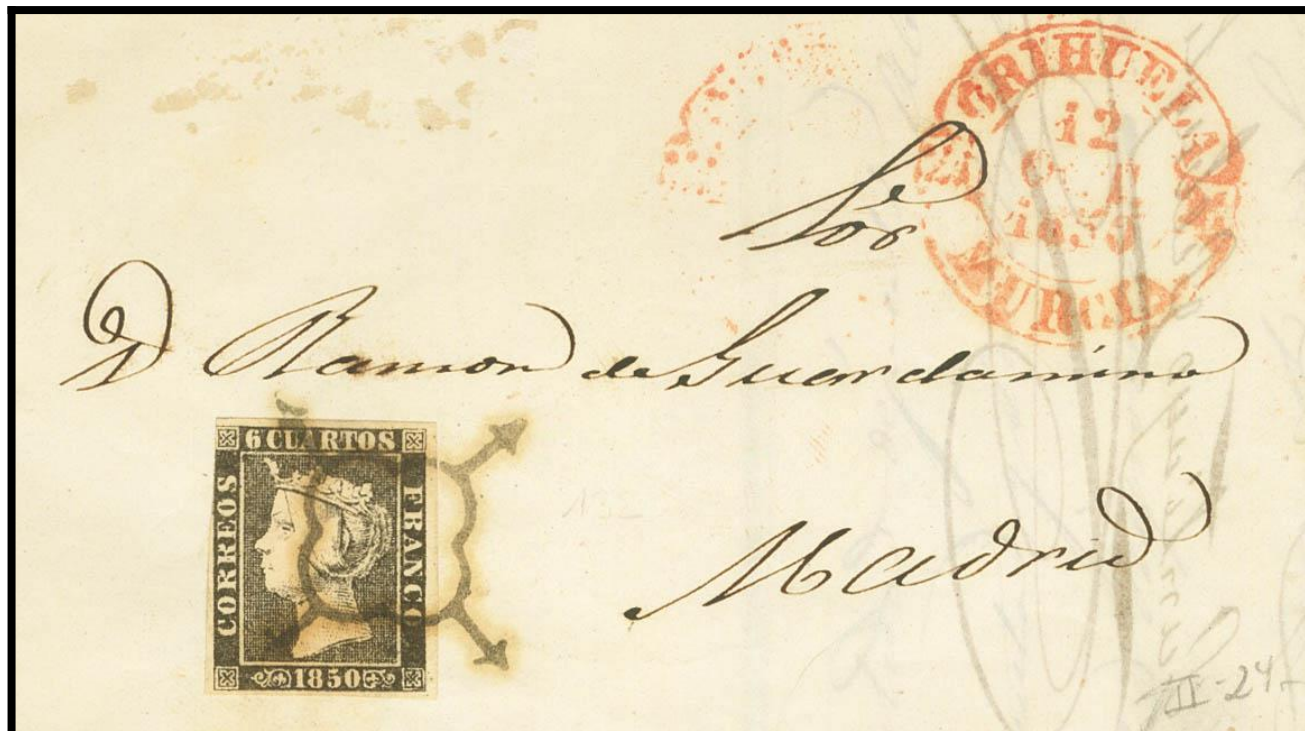 ORIHUELA
12
MURCIA
Sor
D Ramon de Guardamino
Madrid
6 CUARTOS
CORREOS
FRANCO
1850
II-24-